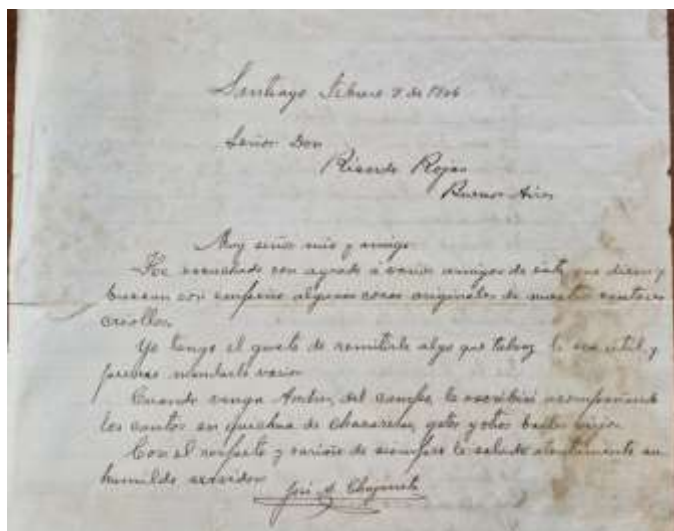 Santiago Febrero 7 de 1906
Señor Don
Ricardo Rojas
Buenos Aires
Muy señor mio y amigo
He escuchado con agrado a varios amigos de esta que desean y
buscan con empeño algunas cosas originales de nuestros cantores
criollos.
Yo tengo el gusto de remitirle algo que talvez le sea útil y
mandarle varios
Cuando venga del campo, le escribiré acompañando
los cantos en quichua de chacareras, gatos y otros bailes
Con el respeto y cariño de siempre le saluda atentamente su
humilde servidor
José A.